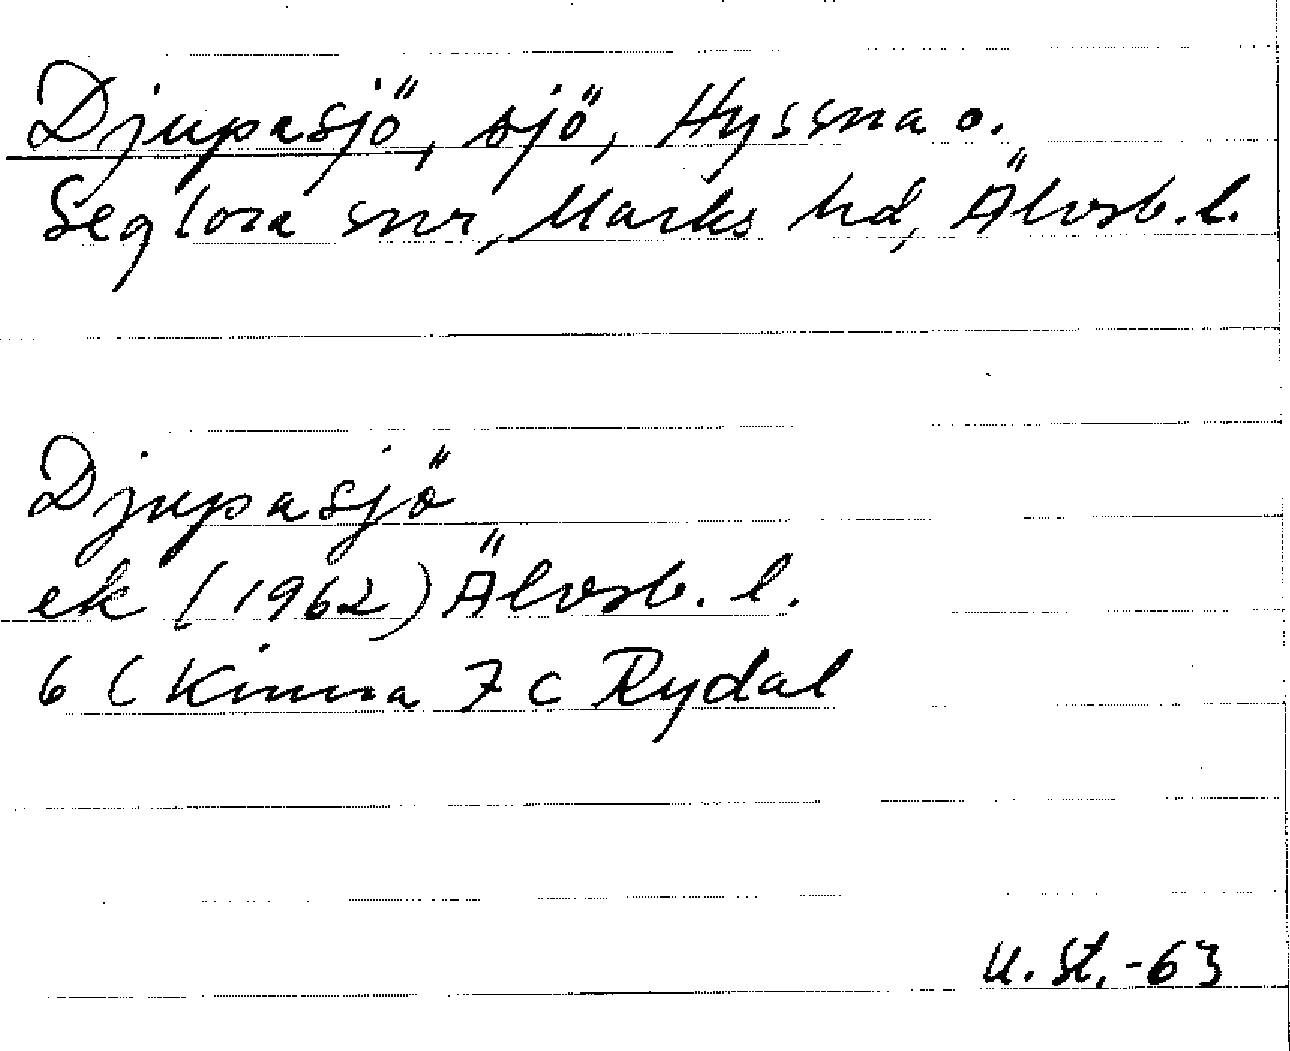 Djupasjö, sjö, Hyssna o.
Seglora snr, Marks hd, Älvsb. l.
Djupasjö
ek (1962) Älvsb. l.
6 C Kinna 7 C Rydal
U. St. -63